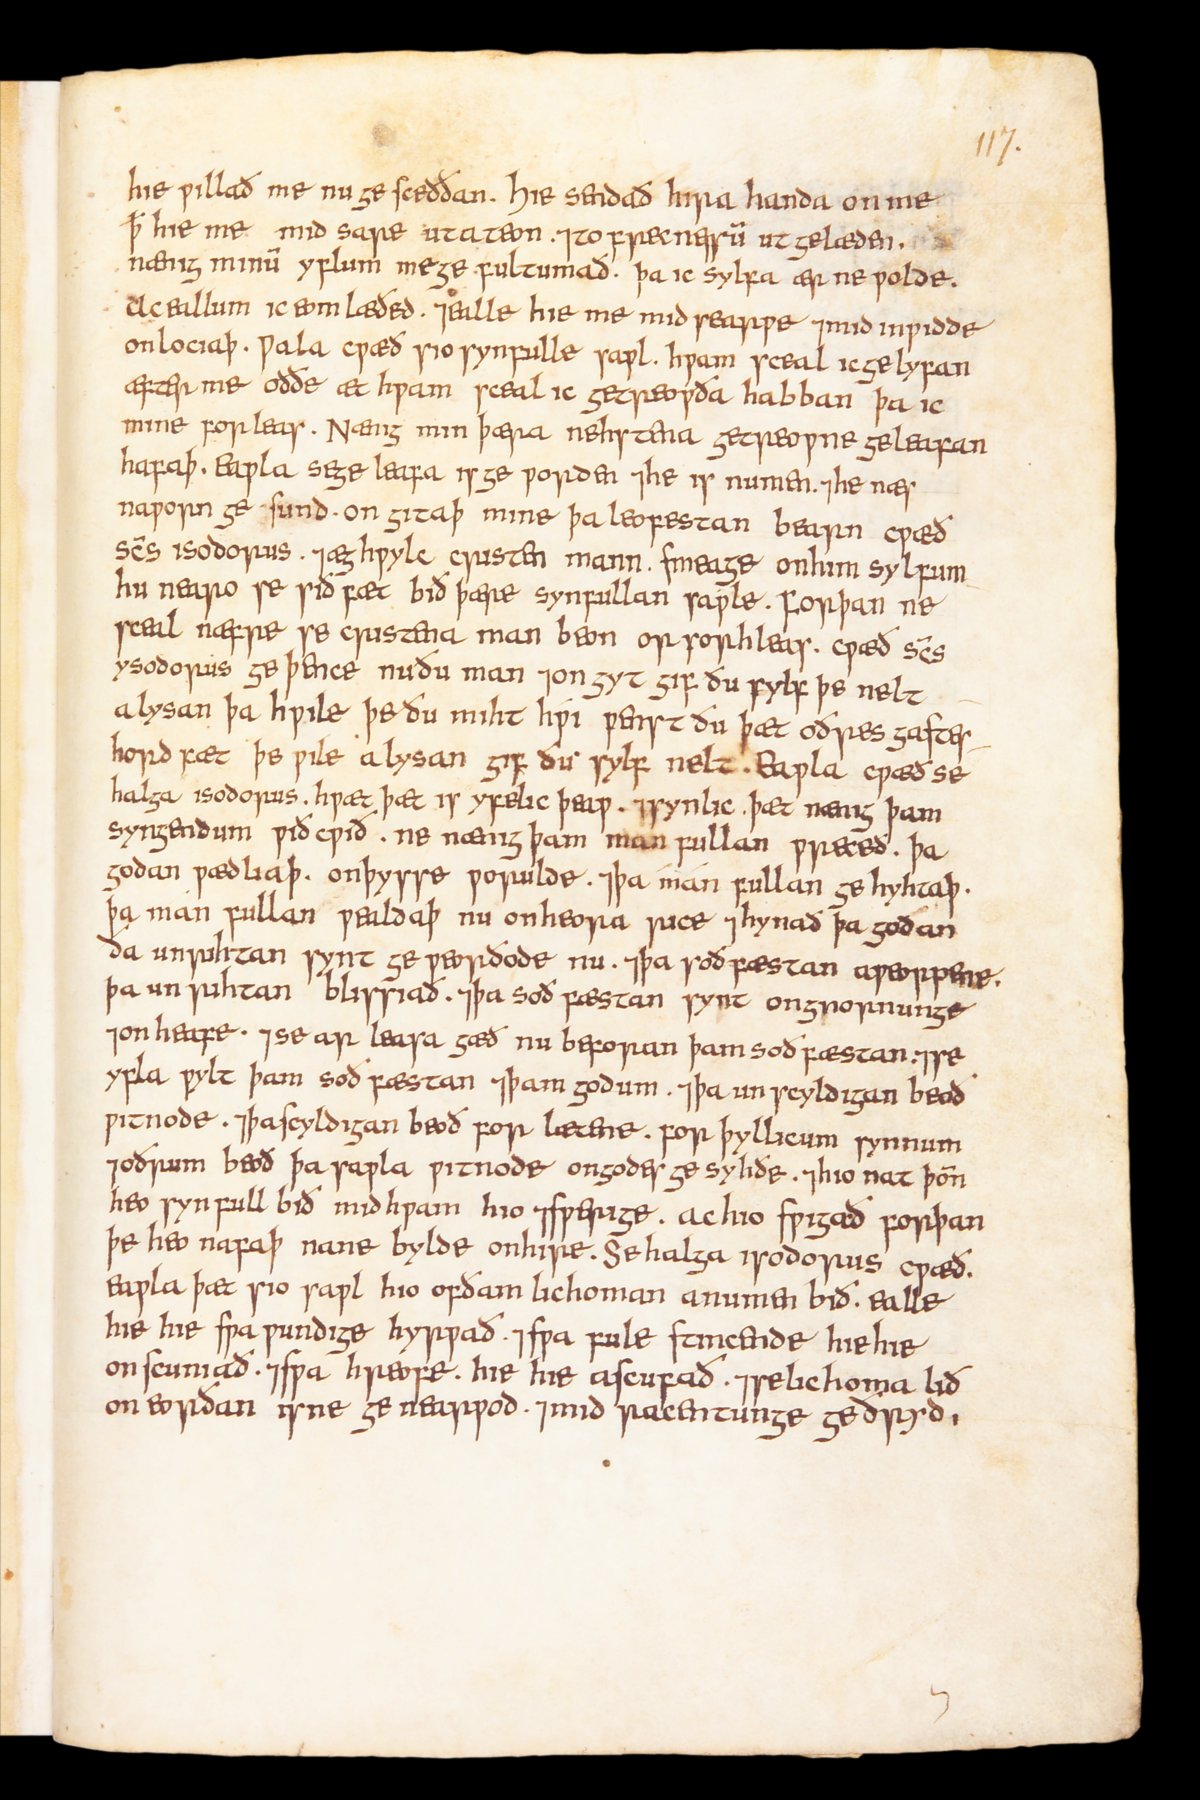 117.
hie ƿillað me nu ge sceððan. Hie sendað hira handa on me
ꝥ hie me mid sare ut ateon. ⁊ to frecnessū ut gelæden.
nænig minū yflum me ge fultumað. þa ic sylfa ær ne ƿolde.
Ac eallum ic eom læðed. ⁊ ealle hie me mid searƿe ⁊ mid inƿidde
onlociaþ. Ƿala cƿæð sio synfulle saƿl. hƿam sceal ic gelyfan
æfter me oððe æt hƿam sceal ic getreoƿða habban þa ic
mine forleas. Nænig min þæra nehstena getreoƿne geleafan
hafaþ. Eaƿla se geleafa is ge ƿorden ⁊ he is numen. ⁊ he næs
naƿorn ge sund. on gitaþ mine þa leofestan bearn cƿæð
sc̄s isodorus. ⁊ æghƿylc cristen mann. smeage on him sylfum
hu nearo se siðfæt bið þære synfullan saƿle. Forþan ne
sceal næfre se cristena man beon orsorhleas. cƿæð sc̄s
ysodorus ge þence nu ðu man ⁊ ongyt gif ðu sylf þe nelt
alysan þa hƿile þe ðu miht hƿi ƿenst ðu þæt oðres gafter-
hord fæt þe ƿile alysan gif ðu sylf nelt. Eaƿla cƿæð se
halga isodorus. hƿæt þæt is yfelic þeaƿ. ⁊ synlic. þæt nænig þam
syngendum ƿiðcƿið. ne nænig þam man fullan ƿreceð. þa
godan ƿædliaþ. on þysse ƿorulde. ⁊ þa man fullan ge hyhtaþ.
þa mán fullan ƿealdaþ nu on heora rice ⁊ hynað þa godan
ða unrihtan synt ge ƿeorðode nu. ⁊ þa soðfæstan aƿeorpene.
þa un rihtan blissiað. ⁊ þa soð fæstan synt on gnornunge
⁊ on heafe. ⁊ se ar leasa gæð nu beforan þam soð fæstan. ⁊ se
yfla ƿylt þam soð fæstan ⁊ þam godum. ⁊ þa un scyldigan beoð
ƿitnode. ⁊ þa scyldigan beoð for lætene. for þyllicum synnum
⁊ oðrum beoð þa saƿla ƿitnode on godes ge syhðe. ⁊ hio nat þōn
heo synfull bið mid hƿam hio ⁊sƿerige. ac hio sƿigað forþan
þe heo nafaþ nane bylde on hire. Se halga isodorus cƿæð.
eaƿla þæt sio saƿl hio of ðam lichoman anumen bið. ealle
hie hie sƿa ƿundige hyrƿað. ⁊ sƿa fule stincende hie hie
onscuniað. ⁊ sƿa hreofe. hie hie ascufað. ⁊ se lichoma lið
on eorðan irne ge nearƿod. ⁊ mid racentunge geðryd.